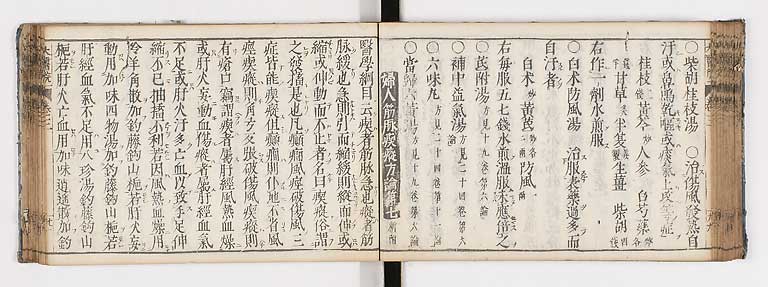 ○柴胡桂枝湯　○治傷風發熱自
汗或鼻鳴乾嘔或痰氣上攻等症
桂枝　黃芩　人參　白芍藥
甘草　半夏　生薑　柴胡
右作一劑水煎服
○白朮防風湯　治服表藥過多而
自汗者
白朮　黃芪　防風
右每服五七錢水煎溫服未應倍之
○芪附湯　方見十九卷第六論
○補中益氣湯　方見二十四卷第六
○六味丸　方見十九卷第十二論
○當歸六黃湯　方見十九卷第六論
婦人筋脉瘈瘲方論第七
醫學綱目云瘈者筋脉急也瘲者筋
脉緩也急則引而縮緩則縱而伸或
縮或伸動而不止者名曰瘈瘲俗謂
之發搐是也凡癲癇風痙破傷風三
症皆能瘈瘲但癲癇則仆地不省風
痙瘈瘲則角弓反張破傷風瘈瘲則
有瘡口竊謂瘈者屬肝經風熱血燥
或肝火妄動血傷瘲者屬肝經血氣
不足或肝火汗多亡血以致手足伸
縮不已抽搐不利若因風熱血燥用
羚羊角散加鈎藤鈎山梔若肝火妄
動用加味四物湯加鈎藤鈎山梔若
肝經血氣不足用八珍湯鈎藤鈎山
梔若肝火亡血用加味逍遙散加鈎